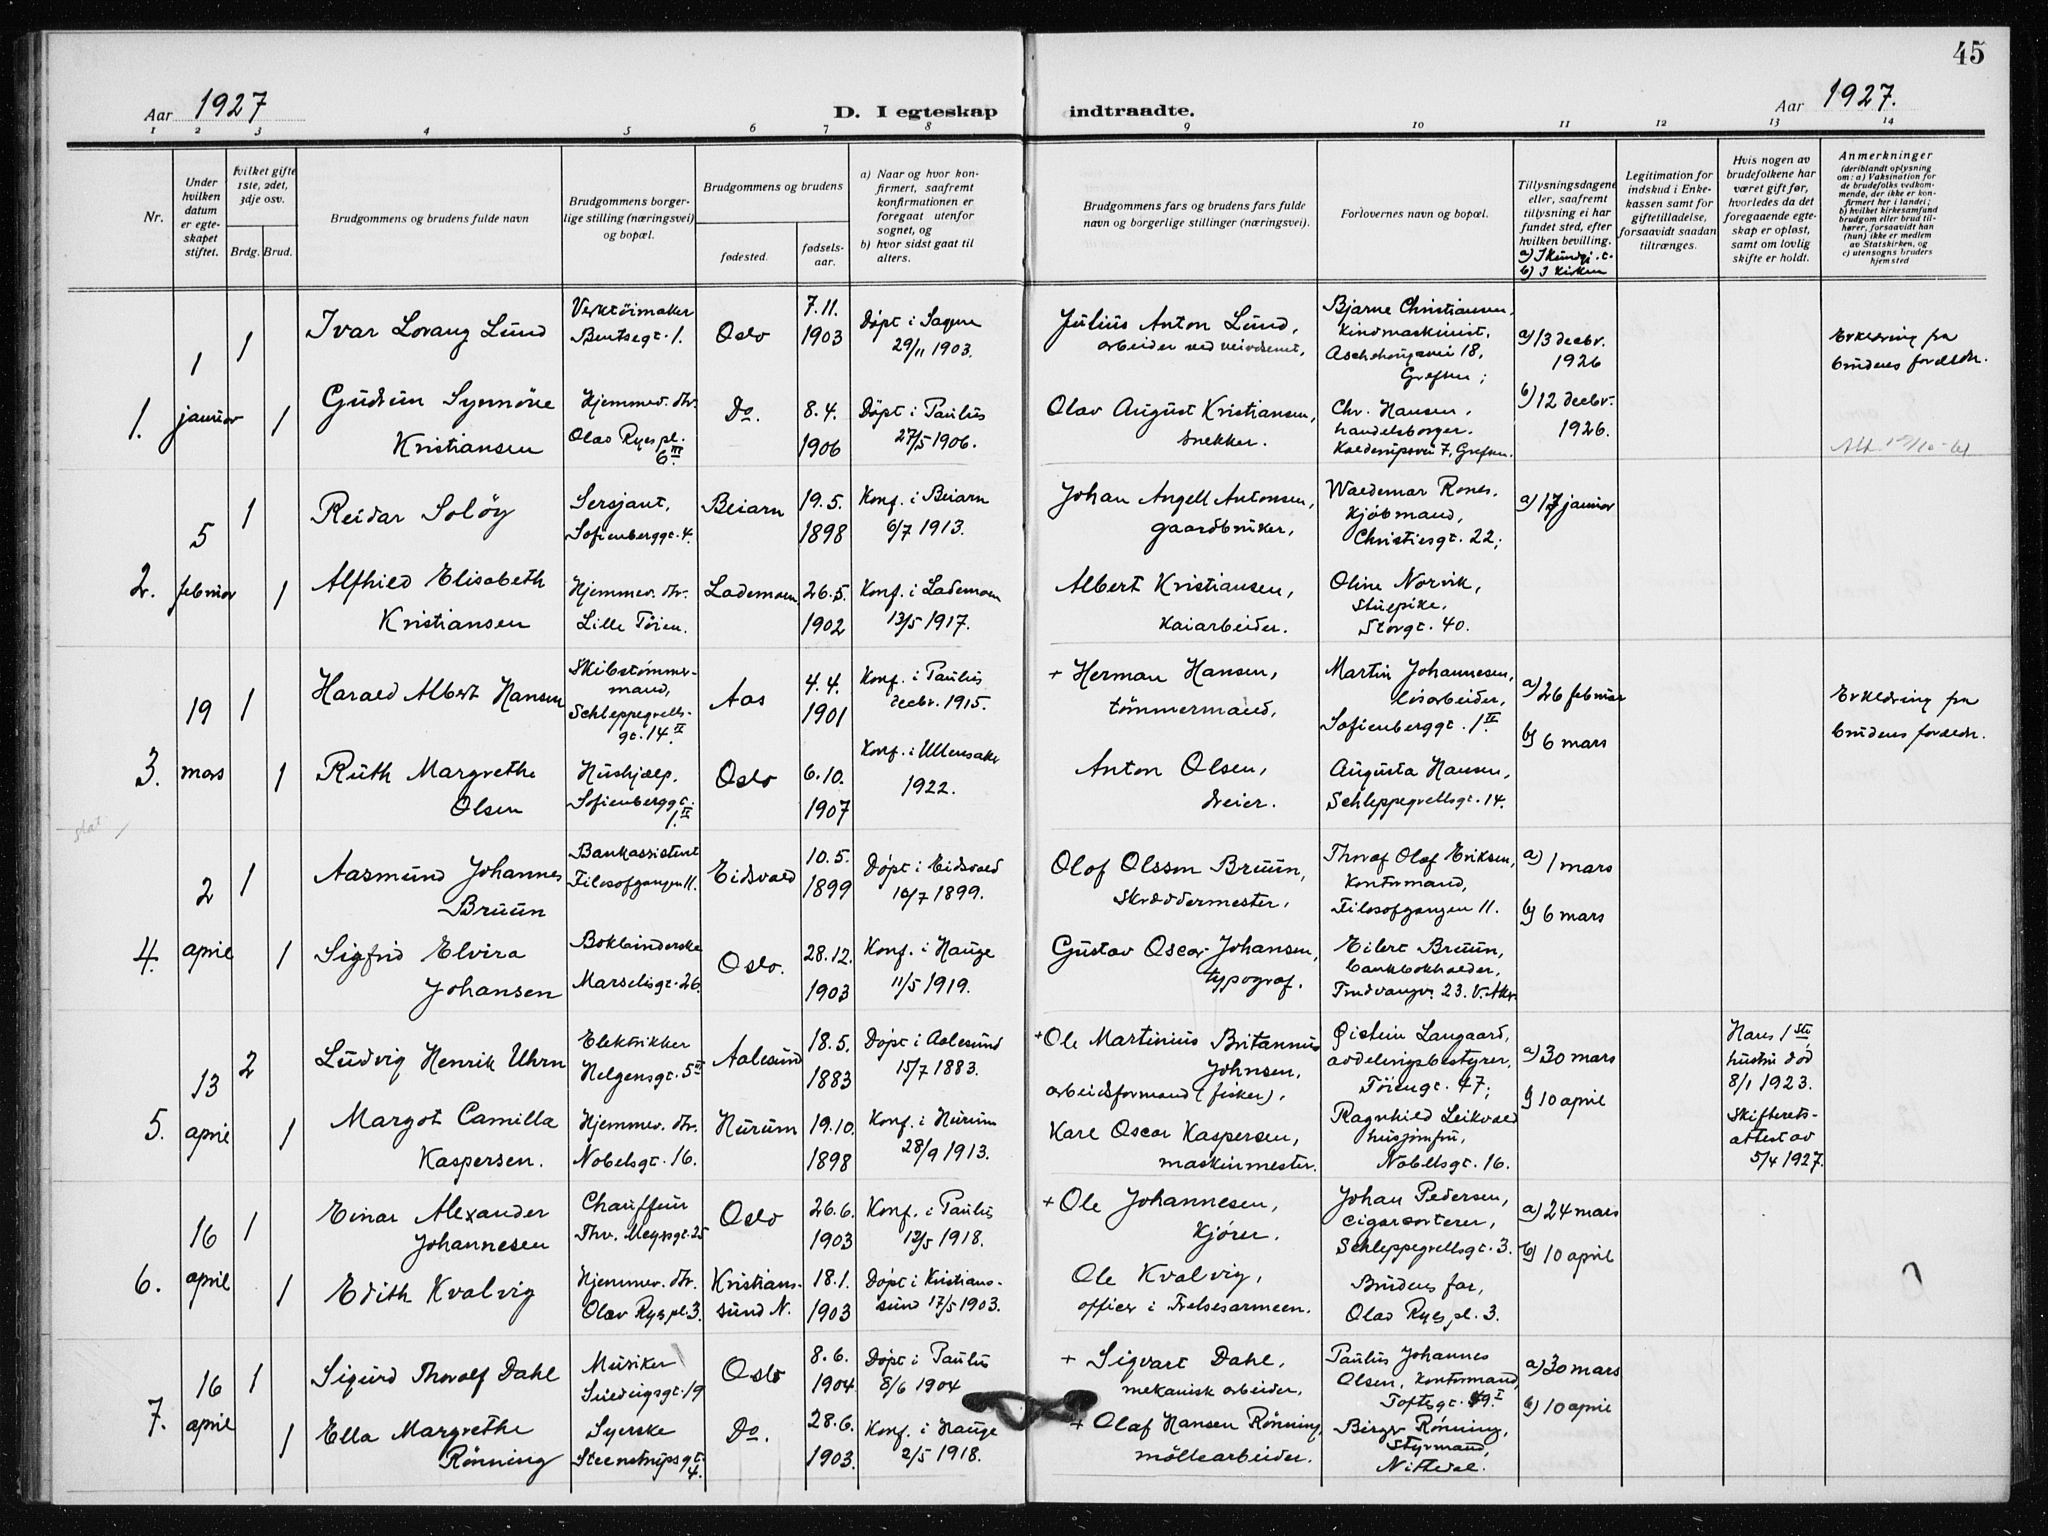 45
Aar 1927
D. I egteskap
indtraadte.
Aar 1927.
1 2 3 4 5 6 7 8 9 10 11 12 13 14
Nr.
Under
hvilken
datum
er egte-
skapet
stiftet.
Hvilket gifte
1ste, 2det,
3dje osv.
Brdg. Brud.
Brudgommens og brudens fulde navn
Brudgommens borger-
lige stilling (næringsvei)
og bopæl.
Brudgommens og brudens
fødested.
fødsels-
aar.
a) Naar og hvor kon-
firmert, saafremt
konfirmationen er
foregaat utenfor
sognet, og
b) hvor sidst gaat til
alters.
Brudgommens fars og brudens fars fulde
navn og borgerlige stillinger (næringsvei).
Forlovernes navn og bopæl.
Tillysningsdagene
eller, saafremt
tillysning ei har
fundet sted, efter
hvilken bevilling.
b) I kirken
Legitimation for
indskud i Enke-
kassen samt for
giftetilladelse,
forsaavidt saadan
tiltrænges.
Hvis nogen av
brudefolkene har
været gift før,
hvorledes da det
foregaaende egte-
skap er opløst,
samt om lovlig
skifte er holdt.
Anmerkninger
(deriblandt oplysning
om: a) Vaksination for
de brudefolks vedkom-
mende, der ikke er kon-
firmert her i landet;
b) hvilket kirkesamfund
brudgom eller brud til-
hører, forsaavidt han
(hun) ikke er medlem
av Statskirken, og
c) utensogns bruders
hjemsted
1. 1 januar
1
Ivar Lorang Lund
Verktöimaker
Bentsegt. 1.
Oslo
7.11.
1903
Döpt i Sagene
29/11 1903.
Julius Anton Lund,
arbeider ved veivæsenet,
Bjarne Christiansen,
Kinomaskinist,
Aschehougsvei 18,
Grefsen;
a) 13 decbr.
1926
b) 12 decbr.
1926.
Erklæring fra
brudens forældr.
1
Gudrun Synnöve
Kristiansen
Hjemmev. dtr.
Olav Ryes pl.
6 III
Do.
8.4.
1906
Döpt i Paulus
27/5 1906.
Olav August Kristiansen,
snekker.
Chr. Hansen,
handelsborger.
Kalderupsvei 7, Grefsen.
2. 5 februar
1
Reidar Solöy
Sersjant,
Sofienberggt. 4.
Beiarn
19.5.
1898
Konf. i Beiarn
6/7 1913.
Johan Angell Antonsen,
gaardbruker,
Waldemar Rones.
Kjöbmand,
Christiesgt. 22;
a) 17 januar
1
Alfhild Elisabeth
Kristiansen
Hjemmev. dtr.
Lille Töien.
Lademoen
26.5.
1902
Konf. i Lademoen
13/5 1917.
Albert Kristiansen,
Kaiarbeider.
Oline Norvik,
Stuepike,
Storgt. 40.
3. 19 mars
1
Harald Albert Hansen
Skibstömmer-
mand,
Schleppegrells-
gt. 14 II
Aas
4.4.
1901
Konf. i Paulus
decbr. 1915.
+ Herman Hansen,
tömmermand,
Martin Johannesen,
lösarbeider,
Sofienberggt. 1 II
a) 26 februar
b) 6 mars
Erklæring fra
brudens forældr.
1
Ruth Margrethe
Olsen
Hushjælp.
Sofienberggt.
1 II
Oslo
6.10.
1907
Konf. i Ullensaker
1922.
Anton Olsen,
dreier.
Augusta Hansen,
Schleppegrellsgt. 14.
4. 2 april
1
Aasmund Johannes
Bruun
Bankassistent
Filosofgangen 11.
Eidsvold
10.5.
1899
Döpt i Eidsvold
16/7 1899.
Olof Olsson Bruun,
Skræddermester,
Thoraf Olaf Eriksen,
Kontormand,
Filosofgangen 11.
a) 1 mars
b) 6 mars
1
Sigfrid Elvira
Johansen
Bokbinderske
Marselisgt. 26.
Oslo.
28.12.
1903
Konf. i Hauge
11/5 1919.
Gustav Oscar Johansen,
typograf.
Eilert Bruun,
bankbokholder,
Trudvangv. 23. V. Aker
5. 13 april
2
Ludvig Henrik Uhrn
Elektrikker
Helgensgt. 5 III
Aalesund
18.5.
1883
Döpt i Aalesund
15/7 1883.
+ Ole Martinius Britannus
Johnsen,
arbeidsformand (fisker),
Öistein Langaard,
avdelingsbestyrer,
Töiengt. 47;
a) 30 mars
b) 10 april
Hans 1ste
hustru död
8/1 1923.
Skifterets-
attest av
5/4 1927.
1
Margot Camilla
Kaspersen.
Hjemmev. dtr.
Nobelsgt. 16.
Hurum
19.10.
1898
Konf. i Hurum
28/9 1913.
Karl Oscar Kaspersen,
maskinmester.
Ragnhild Leikvold
husjomfru,
Nobelsgt. 16.
6. 16 april
1
Einar Alexander
Johannesen
Chauffeur
Thv. Meyersgt. 25
Oslo
26.6.
1903
Konf. i Paulus
12/5 1918.
+ Ole Johannesen,
Kjörer.
Johan Pedersen,
cigarsorterer,
Schleppegrellsgt. 3.
a) 24 mars
b) 10 april
1
Edith Kvalvig
Hjemmev. dtr.
Olav Ryes pl. 3.
Kristians-
sund N.
18.1.
1903
Döpt i Kristians-
sund 17/5 1903.
Ole Kvalvig,
officer i Frelsesarmeen.
Brudens far,
Olav Ryes pl. 3.
7. 16 april
1
Sigurd Thoralf Dahl
Musiker
Oslo
8.6.
1904
Döpt i Paulus
8/6 1904
+ Sigvart Dahl,
mekanisk arbeider,
Paulus Johannes
Olsen, Kontormand,
Toftesgt. 49 I
a) 30 mars
b) 10 april
1
Ella Margrethe
Rönning
Syerske
Steenstrupsgt.
4.
Do.
28.6.
1903.
Konf. i Hauge
2/5 1918.
+ Olaf Hansen Rönning,
möllearbeider.
Birger Rönning,
Styrmand,
Nittedal.